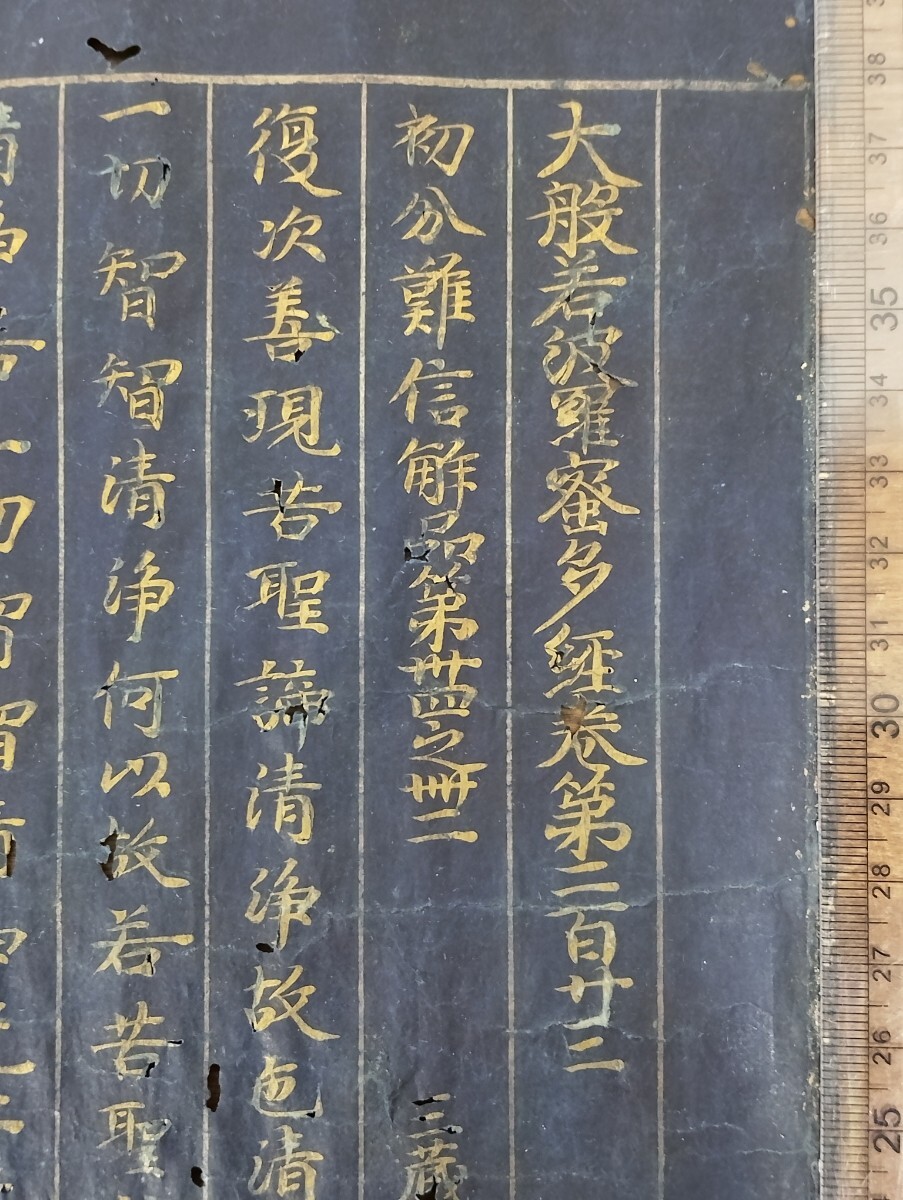 大般若波羅蜜多經卷第二百廿二
初分難信解品第卅四之卌二 三藏
復次善現苦聖諦清浄故色清
一切智智清浄何以故若苦聖
38
37
36
35
34
33
32
31
30
29
28
27
26
25